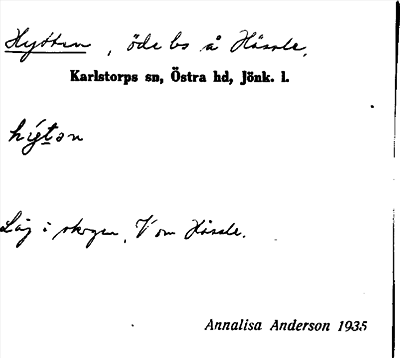 Hytten, öde bs å Hässle.
Karlstorps sn, Östra hd, Jönk. l.
hýtən
Låg i skogen, V om Hässle.
Annalisa Anderson 1935